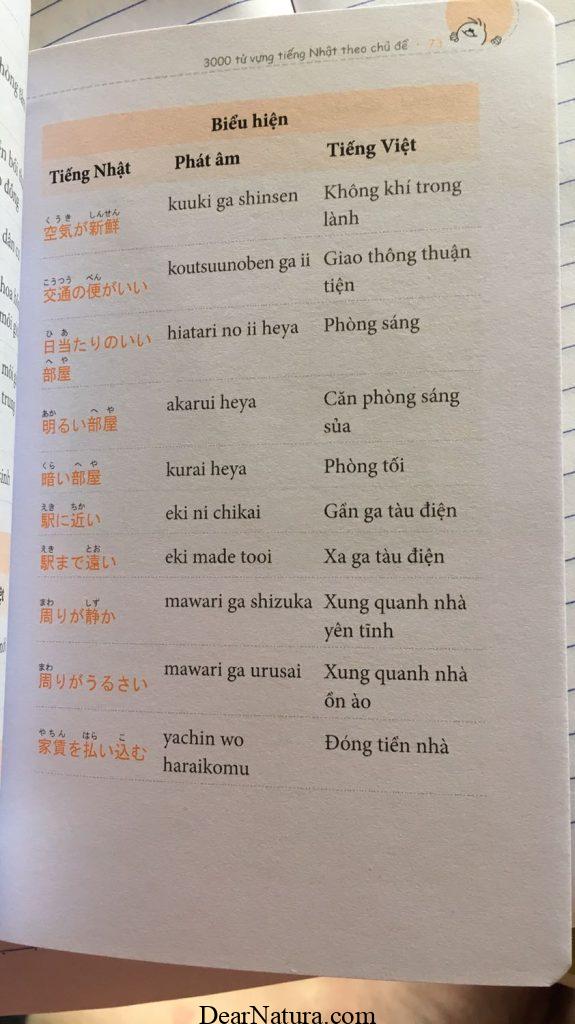 3000 từ vựng tiếng Nhật theo chủ đề · 73
Biểu hiện
Tiếng Nhật Phát âm Tiếng Việt
くうき しんせん
空気が新鮮 kuuki ga shinsen Không khí trong
lành
こうつう べん
交通の便がいい koutsuunoben ga ii Giao thông thuận
tiện
ひ あ
日当たりのいい hiatari no ii heya Phòng sáng
へ や
部屋
あか へ や
明るい部屋 akarui heya Căn phòng sáng
sủa
くら へ や
暗い部屋 kurai heya Phòng tối
えき ちか
駅に近い eki ni chikai Gần ga tàu điện
えき とお
駅まで遠い eki made tooi Xa ga tàu điện
まわ しず
周りが静か mawari ga shizuka Xung quanh nhà
yên tĩnh
まわ
周りがうるさい mawari ga urusai Xung quanh nhà
ồn ào
やちん はら こ
家賃を払い込む yachin wo Đóng tiền nhà
haraikomu
DearNatura.com